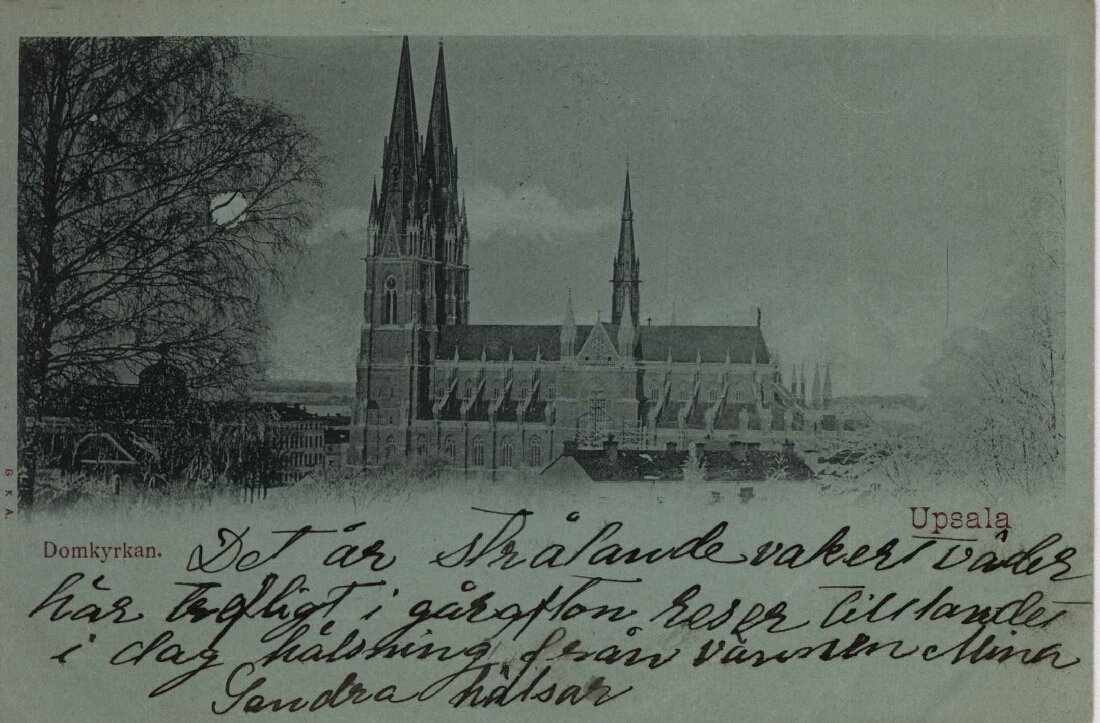 Upsala
Domkyrkan.
Det är strålande vakert väder
här trefligt i går afton reser till landet
i dag hälsning från vännen Mina
Sandra hälsar
G. K. A.